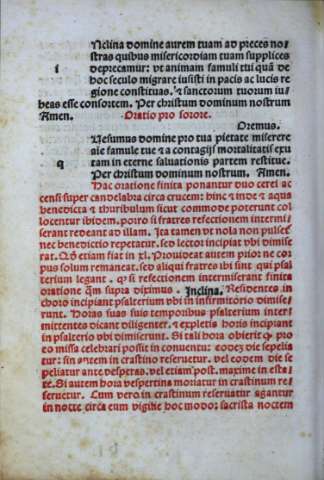 Nclina domine aurem tuam ad preces no
stras quibus misericordiam tuam supplices
i deprecamur: vt animam famuli tui quã de
hoc seculo migrare iussisti in pacis ac lucis re
gione constituas. ⁊ sanctorum tuorum iu
beas esse consortem. Per christum dominum nostrum
Amen. Oratio pro sorore.
Oremus.
Uesumus domine pro tua pietate miserere
aie famule tue ⁊ a contagijs mortalitatis exu
q tam in eterne saluationis partem restitue.
Per christum dominum nostrum. Amen.
Hac oratione finita ponantur duo cerei ac
censi super candelabra circa crucem: hinc ⁊ inde ⁊ aqua
benedicta ⁊ thuribulum sicut commode poterunt col
locentur ibidem. porro si fratres refectionem intermi
serant redeant ad illam. Ita tamen vt nola non pulset
nec benedictio repetatur. sed lector incipiat vbi dimise
rat. Qđ etiam fiat in xl. Prouideat autem prior ne cor
pus solum remaneat. sed aliqui fratres ibi sint qui psal
terium legant. ꝙ si refectionem intermiserant finita
oratione qm̃ supra diximus. Inclina. Residentes in
choro incipiant psalterium vbi in infirmitorio dimise
runt. Horas suas suis temporibus psalterium inter
mittentes dicant diligenter. ⁊ expletis horis incipiant
in psalterio vbi dimiserunt. Si tali hora obierit ꝙ pro
eo missa celebrari possit in conuentu: eodez die sepelia
tur: sin autem in crastino reseruetur. vel eodem die se
peliatur ante vesperas. vel etiam post. maxime in esta
te. Si autem hora vespertina moriatur in crastinum re
seruetur. Cum vero in crastinum reseruatur agantur
in nocte circa eum vigilie hoc modo: sacrista noctem